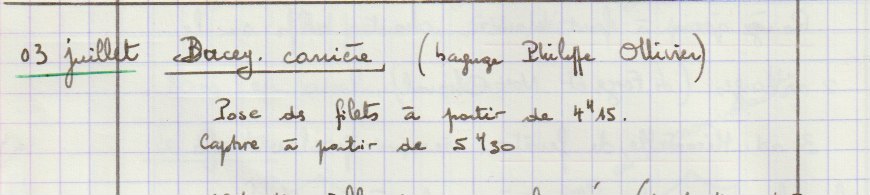 03 juillet Ducey. carrière (baguage Philippe Ollivier)
Pose des filets à partir de 4H15.
Capture à partir de 5H30